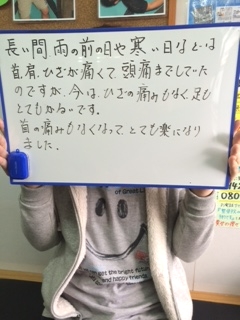 長い間 雨の前の日や寒い日などは
首、肩、ひざが痛くて頭痛までしていた
のですが、今は、ひざの痛みもなく、足も
とてもかるいです。
首の痛みもなくなって、とても楽になり
ました。
of Great
got the bright future
and happy friends
080